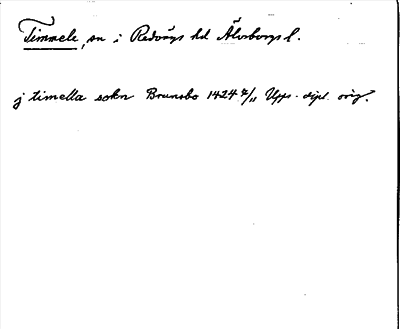 Timmele, sn i Redvägs hd Älvsborgs l.
j timella sokn Brunsbo 1424 7/11 Upps. dipl. orig.